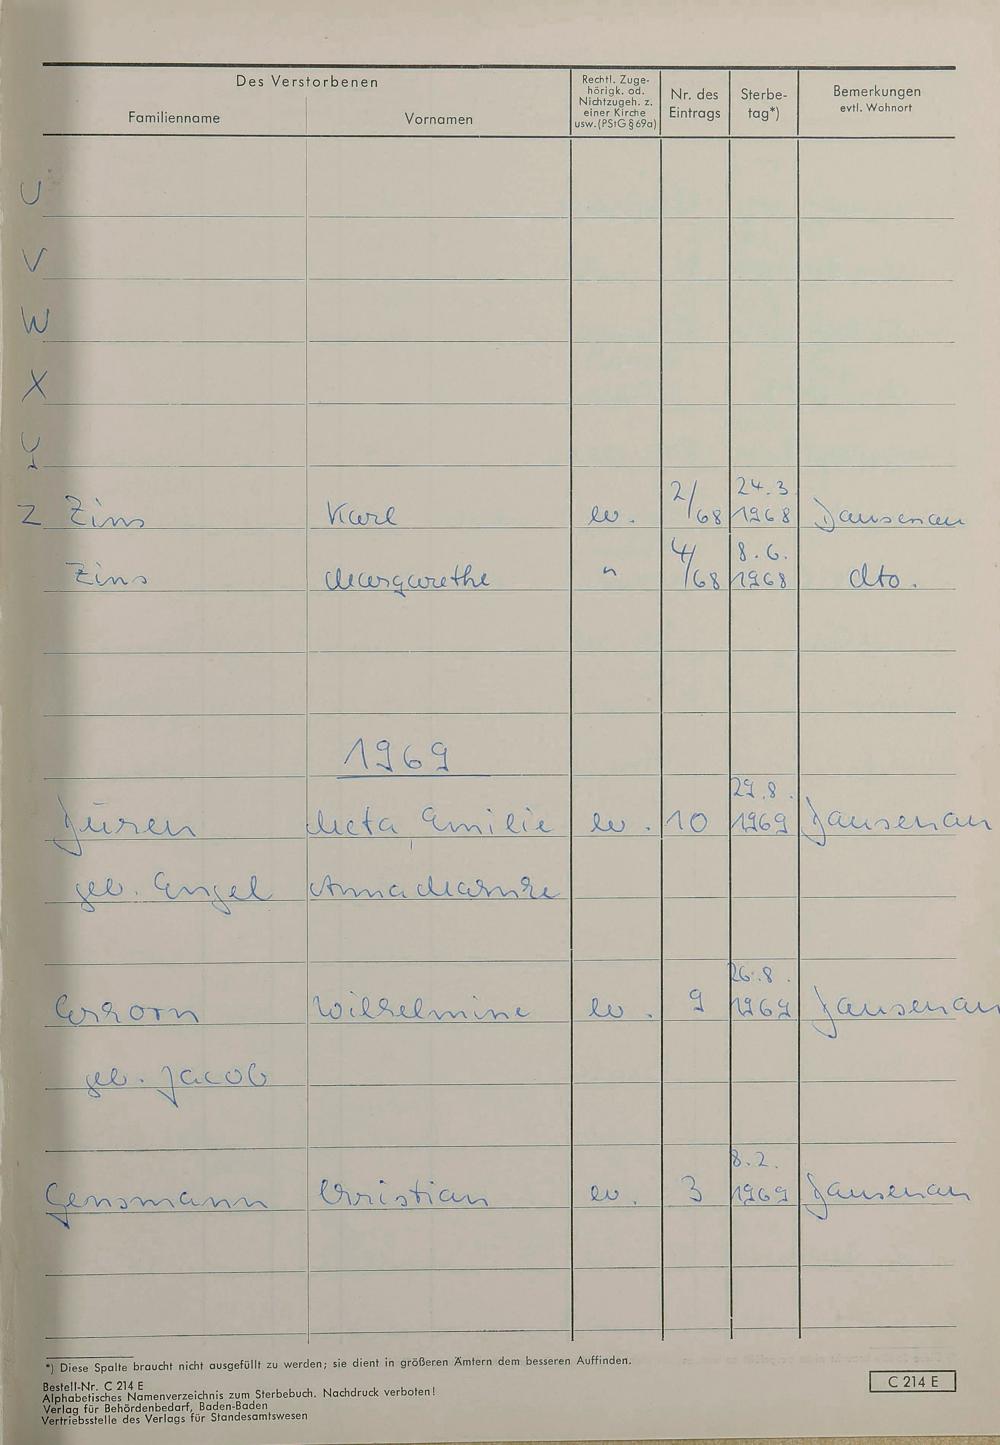 Des Verstorbenen
Familienname
Vornamen
Rechtl. Zuge-
hörigk. od.
Nichtzugeh. z.
einer Kirche
usw. (PStG § 69a)
Nr. des
Eintrags
Sterbe-
tag*)
Bemerkungen
evtl. Wohnort
U
V
W
X
Y
Z Zins Karl ev. 2/68 24.3 1968 Dausenau
Zins Margarethe " 4/68 8.6. 1968 dto.
1969
Düren Meta Emilie ev. 10 29.8. 1969 Dausenau
geb. Engel Anna
Wilhelmine ev. 9 26.8. 1969 Dausenau
geb. Jacob
Gensmann Christian ev. 3 8.2. 1969 Dausenau
*) Diese Spalte braucht nicht ausgefüllt zu werden; sie dient in größeren Ämtern dem besseren Auffinden.
Bestell-Nr. C 214 E
Alphabetisches Namenverzeichnis zum Sterbebuch. Nachdruck verboten!
Verlag für Behördenbedarf, Baden-Baden
Vertriebsstelle des Verlags für Standesamtswesen
C 214 E